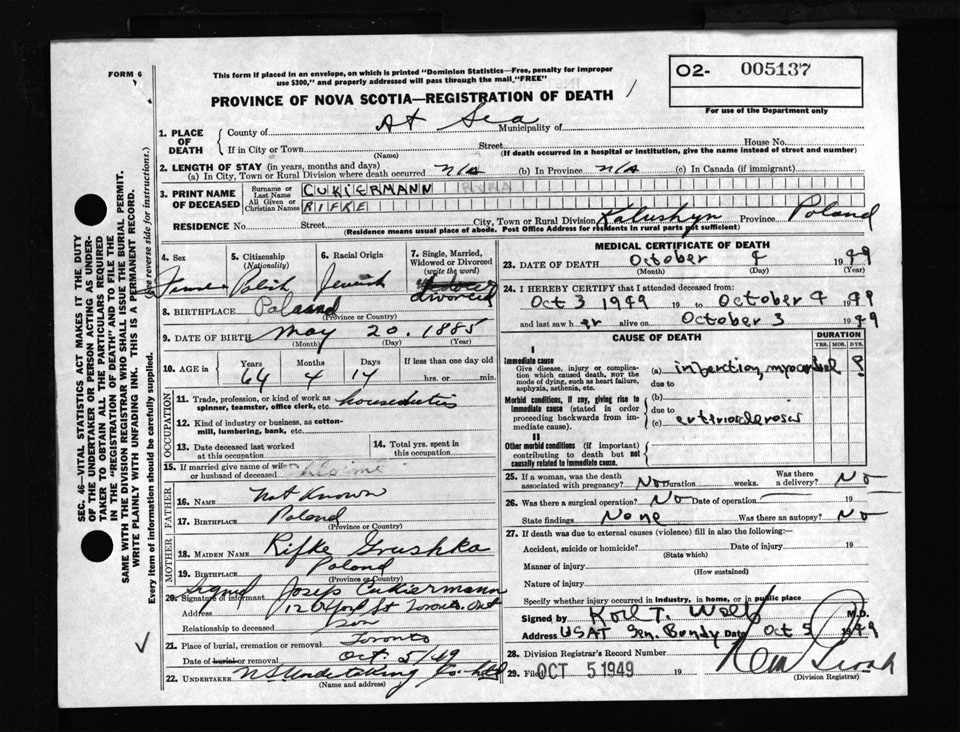 FORM 6
This form if placed in an envelope, on which is printed "Dominion Statistics—Free, penalty for improper
use $300," and properly addressed will pass through the mail "FREE"
PROVINCE OF NOVA SCOTIA—REGISTRATION OF DEATH
02- 005137
For use of the Department only
SEC. 46—VITAL STATISTICS ACT MAKES IT THE DUTY
OF THE UNDERTAKER OR PERSON ACTING AS UNDER-
TAKER TO OBTAIN ALL THE PARTICULARS REQUIRED
IN THE "REGISTRATION OF DEATH" AND TO FILE THE
SAME WITH THE DIVISION REGISTRAR WHO SHALL ISSUE THE BURIAL PERMIT.
WRITE PLAINLY WITH UNFADING INK. THIS IS A PERMANENT RECORD.
Every item of information should be carefully supplied. (See reverse side for instructions.)
1. PLACE OF DEATH
County of At Sea Municipality of
If in City or Town Street House No.
(Name) (If death occurred in a hospital or institution, give the name instead of street and number)
2. LENGTH OF STAY (in years, months and days)
(a) In City, Town or Rural Division where death occurred n/a (b) In Province n/a (c) In Canada (if immigrant)
3. PRINT NAME OF DECEASED
Surname or Last Name CUKIERMANN
All Given or Christian Names RIFKE
RESIDENCE No. Street City, Town or Rural Division Kalushyn Province Poland
(Residence means usual place of abode. Post Office Address for residents in rural parts not sufficient)
4. Sex
Female
5. Citizenship (Nationality)
Polish
6. Racial Origin
Jewish
7. Single, Married, Widowed or Divorced (write the word)
divorced
8. BIRTHPLACE Poland
(Province or Country)
9. DATE OF BIRTH May 20. 1885
(Month) (Day) (Year)
10. AGE in Years Months Days If less than one day old
64 4 14 hrs. or min.
OCCUPATION
11. Trade, profession, or kind of work as
spinner, teamster, office clerk, etc. houseduties
12. Kind of industry or business, as cotton-
mill, lumbering, bank, etc.
13. Date deceased last worked at this occupation
14. Total yrs. spent in this occupation
15. If married give name of wife
or husband of deceased
FATHER
16. NAME Not Known
17. BIRTHPLACE Poland
(Province or Country)
MOTHER
18. MAIDEN NAME Rifke Grushka
19. BIRTHPLACE Poland
(Province or Country)
Signed Josep Cukiermann
20. Signature of informant
Address 12 Oxford St Toronto, Ont
Relationship to deceased Son
21. Place of burial, cremation or removal Toronto
Date of burial or removal Oct. 5/49
22. UNDERTAKER N S Undertaking Co. Ltd
(Name and address)
MEDICAL CERTIFICATE OF DEATH
23. DATE OF DEATH October 4 1949
(Month) (Day) (Year)
24. I HEREBY CERTIFY that I attended deceased from:
Oct 3 1949 19 to October 4 1949
and last saw her alive on October 3 1949
CAUSE OF DEATH
DURATION
YRS. MOS. DYS.
I
Immediate cause
Give disease, injury or complica-
tion which caused death, NOT the
mode of dying, such as heart failure,
asphyxia, asthenia, etc.
(a) infarction, myocardial ?
due to
Morbid conditions, if any, giving rise to
immediate cause (stated in order
proceeding backwards from im-
mediate cause).
(b)
due to
(c) arteriosclerosis
II
Other morbid conditions (if important)
contributing to death but not
causally related to immediate cause.
25. If a woman, was the death
associated with pregnancy? No Duration weeks. Was there a delivery? No
26. Was there a surgical operation? No Date of operation 19
State findings None Was there an autopsy? No
27. If death was due to external causes (violence) fill in also the following:—
Accident, suicide or homicide? Date of injury 19
(State which)
Manner of injury
(How sustained)
Nature of injury
Specify whether injury occurred in industry, in home, or in public place
Signed by Karl T. Wolf M.D.
Address USAT Gen. Bundy Date Oct 5 1949
28. Division Registrar's Record Number
29. Filed OCT 5 1949 19
(Division Registrar)